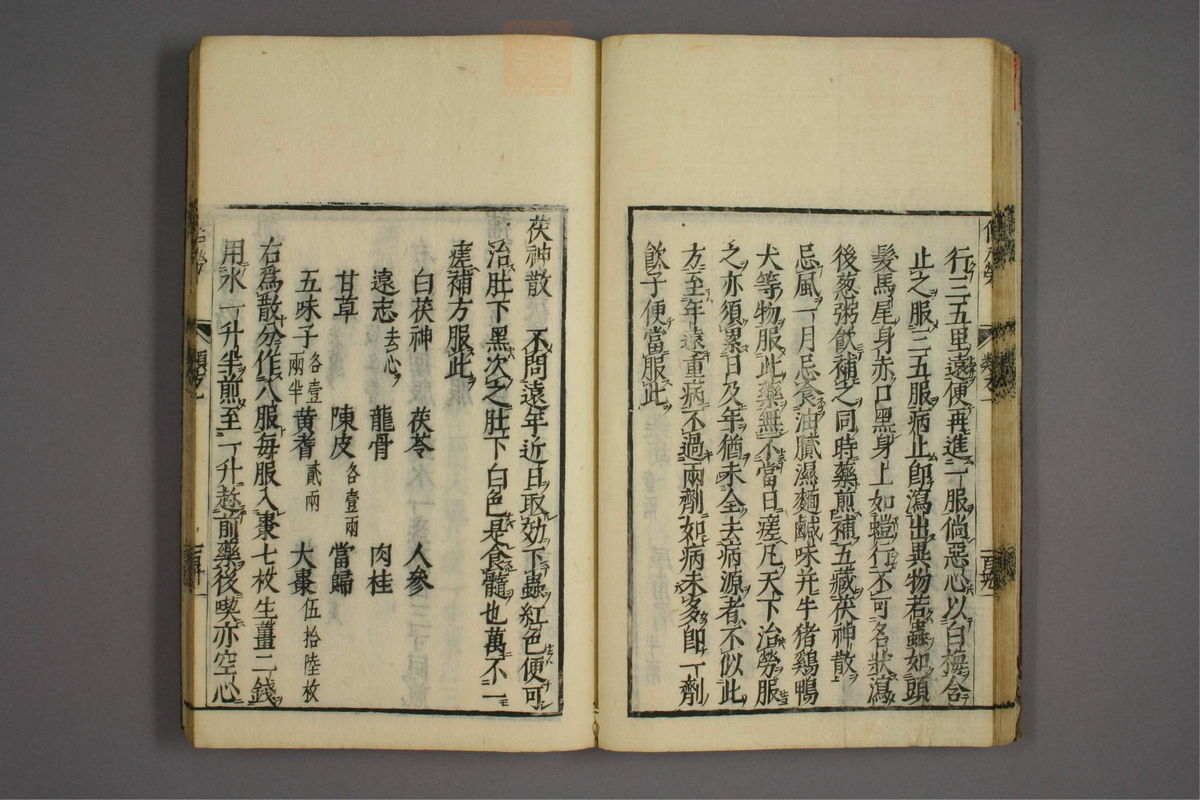 行三五里遠便再進一服倘惡心以白梅含
止之服三五服病止卽瀉出異物若蟲如頭
髮馬尾身赤口黑身上如蟻行不可名狀瀉
後葱粥飲補之同時藥煎補五藏茯神散
忌風一月忌食油膩濕麵鹹味幷牛猪鷄鴨
犬等物服此藥無不當日瘥凡天下治勞服
之亦須累日及年猶未全去病源者不似此
方至年遠重病不過兩劑如病未多卽一劑
飮子便當服此
茯神散 不問遠年近日取効下蟲紅色便可
治肚下黑次之肚下白色是食髓也萬不一
瘥補方服此
白茯神 茯苓 人參
遠志去心 龍骨 肉桂
甘草 陳皮各壹兩 當歸
五味子各壹兩半 黄耆貳兩 大棗伍拾陸枚
右爲散分作八服每服入棗七枚生薑二錢
用水一升半煎至一升趂前藥後喫亦空心